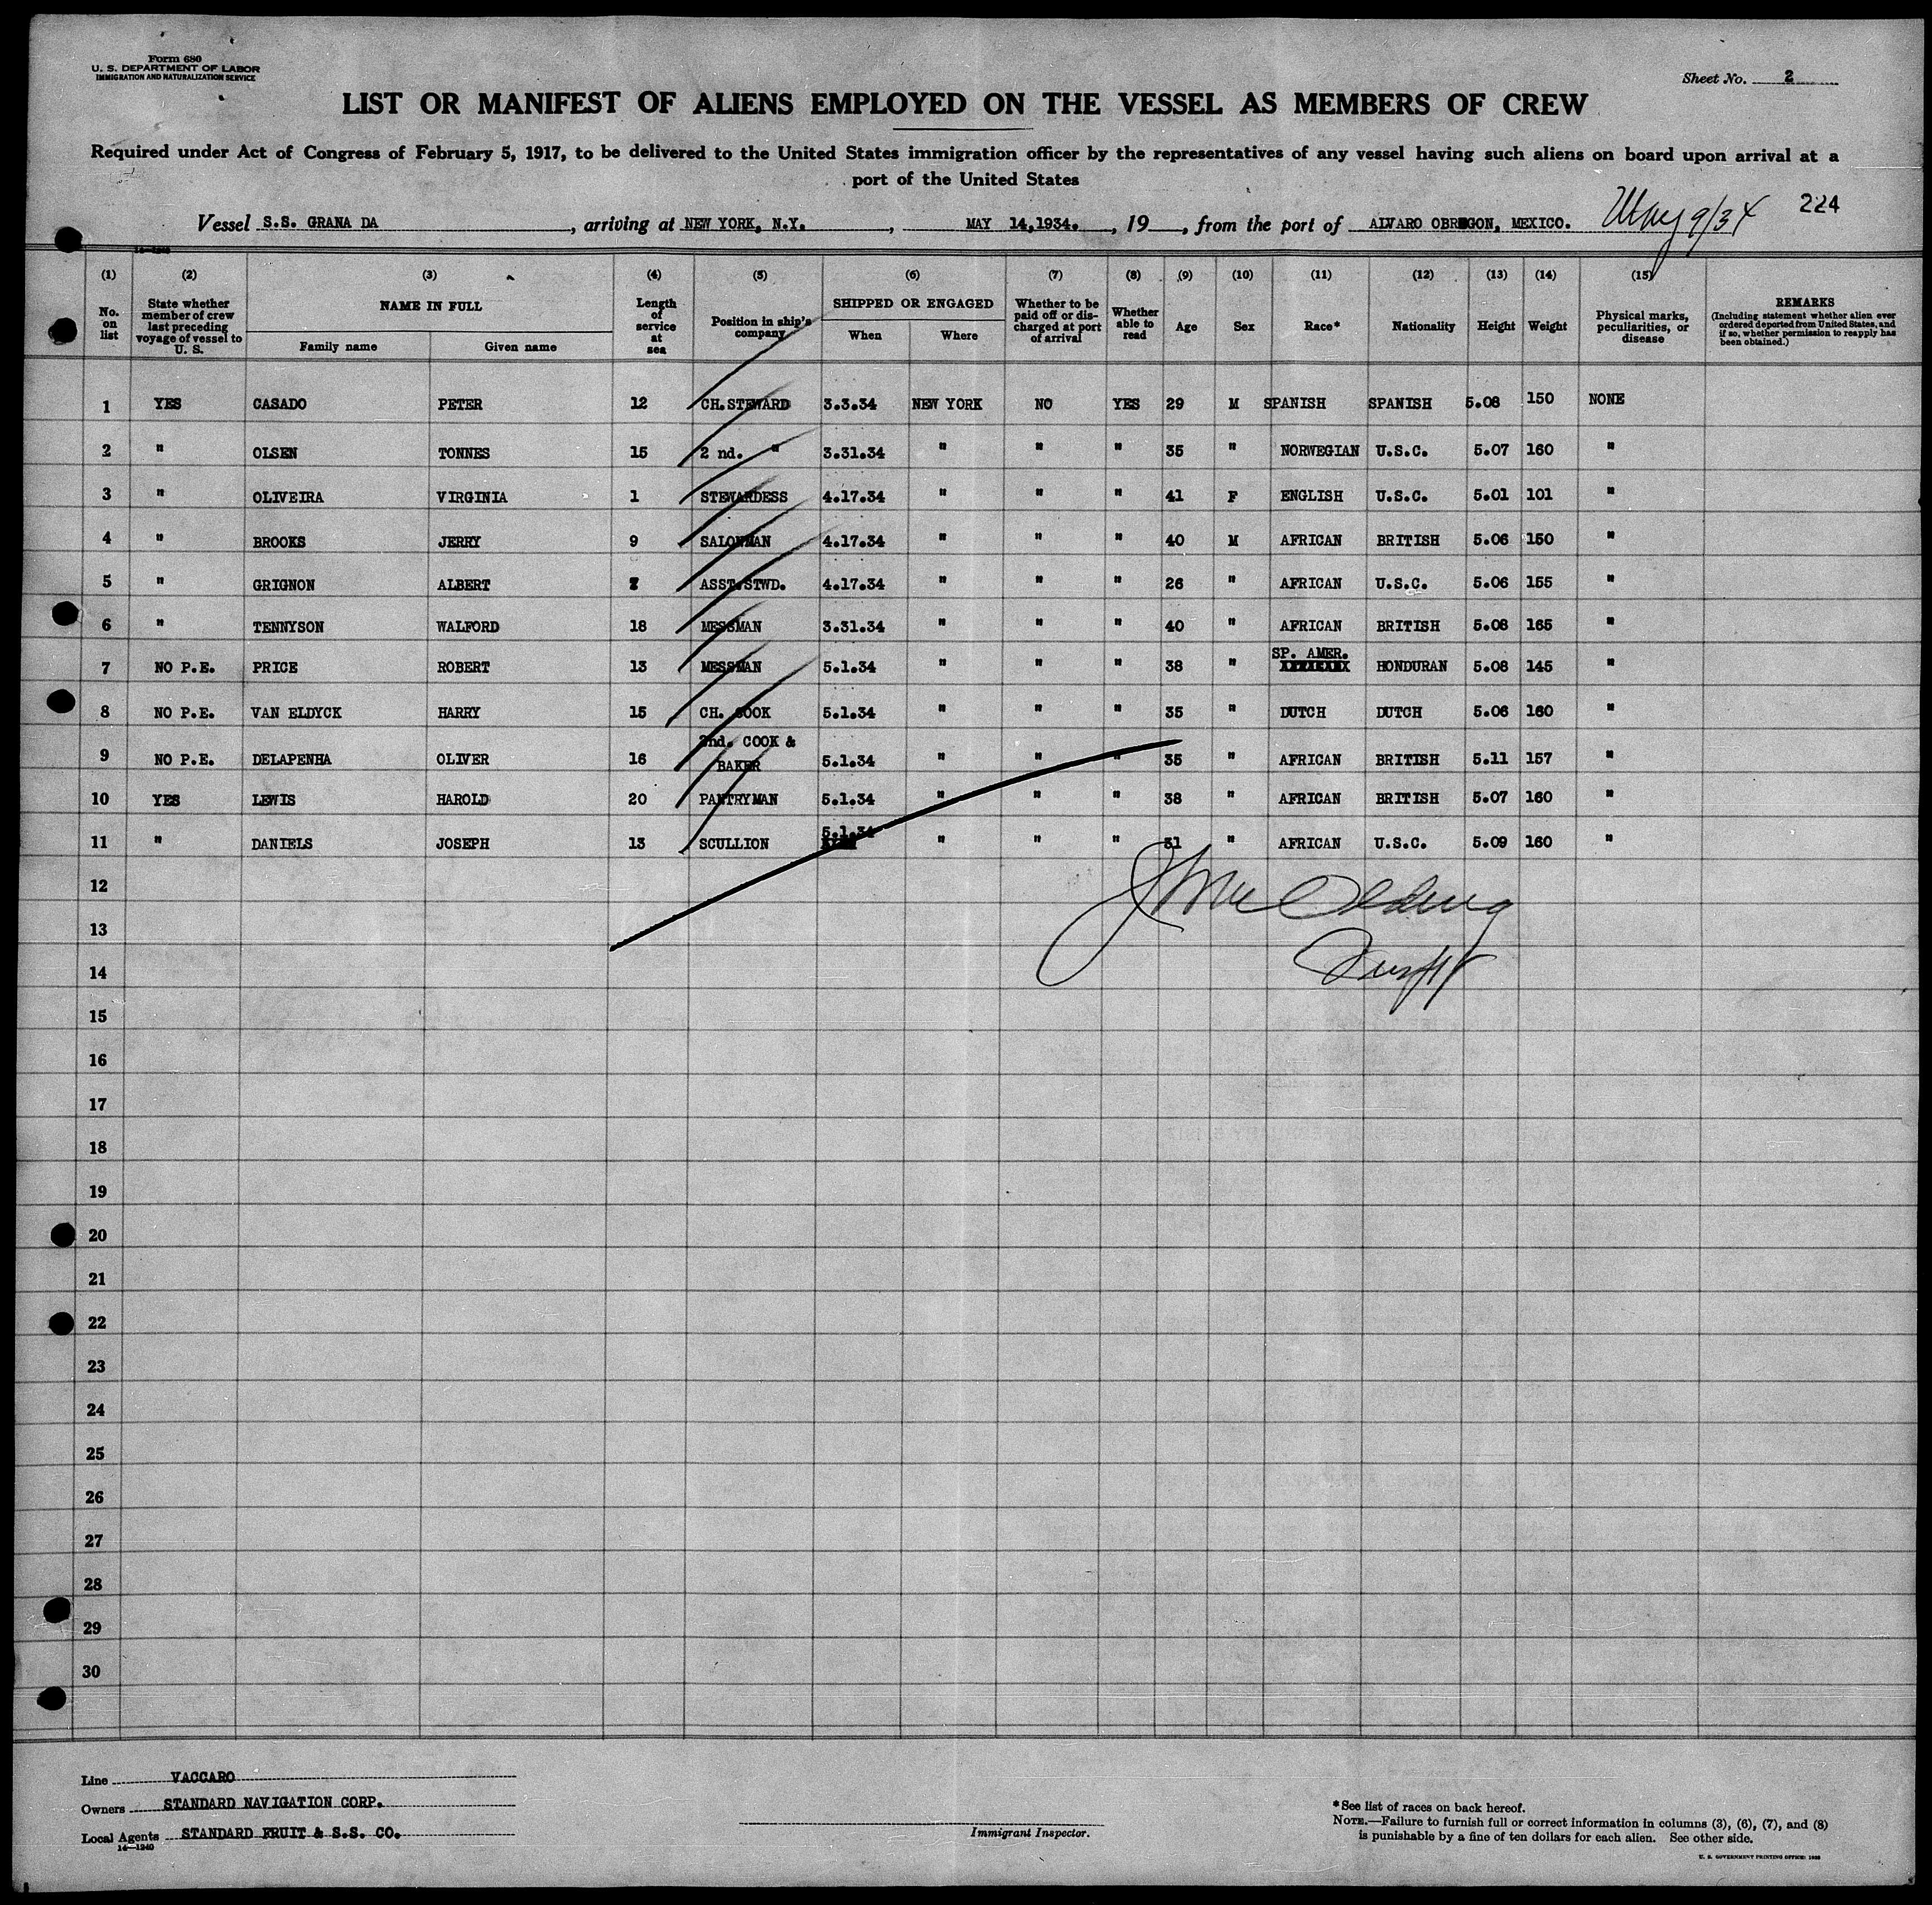 Form 680
U. S. DEPARTMENT OF LABOR
IMMIGRATION AND NATURALIZATION SERVICE
Sheet No. 2
LIST OR MANIFEST OF ALIENS EMPLOYED ON THE VESSEL AS MEMBERS OF CREW
Required under Act of Congress of February 5, 1917, to be delivered to the United States immigration officer by the representatives of any vessel having such aliens on board upon arrival at a
port of the United States
Vessel S.S. GRANA DA, arriving at NEW YORK, N.Y., MAY 14,1934., 19, from the port of ALVARO OBREGON, MEXICO. May 9/34 224
14-1240
(1) (2) (3) (4) (5) (6) (7) (8) (9) (10) (11) (12) (13) (14) (15)
No. on list State whether member of crew last preceding voyage of vessel to U. S. NAME IN FULL Family name Given name Length of service at sea Position in ship's company SHIPPED OR ENGAGED When Where Whether to be paid off or discharged at port of arrival Whether able to read Age Sex Race* Nationality Height Weight Physical marks, peculiarities, or disease REMARKS (Including statement whether alien ever ordered deported from United States, and if so, whether permission to reapply has been obtained.)
1 YES CASADO PETER 12 CH.STEWARD 3.3.34 NEW YORK NO YES 29 M SPANISH SPANISH 5.08 150 NONE
2 " OLSEN TONNES 15 2 nd. " 3.31.34 " " " 35 " NORWEGIAN U.S.C. 5.07 160 "
3 " OLIVEIRA VIRGINIA 1 STEWARDESS 4.17.34 " " " 41 F ENGLISH U.S.C. 5.01 101 "
4 " BROOKS JERRY 9 SALONMAN 4.17.34 " " " 40 M AFRICAN BRITISH 5.06 150 "
5 " GRIGNON ALBERT 7 ASST.STWD. 4.17.34 " " " 26 " AFRICAN U.S.C. 5.06 155 "
6 " TENNYSON WALFORD 18 MESSMAN 3.31.34 " " " 40 " AFRICAN BRITISH 5.08 165 "
7 NO P.E. PRICE ROBERT 13 MESSMAN 5.1.34 " " " 38 " SP. AMER. HONDURAN 5.08 145 "
8 NO P.E. VAN ELDYCK HARRY 15 CH. COOK 5.1.34 " " " 35 " DUTCH DUTCH 5.06 160 "
9 NO P.E. DELAPENHA OLIVER 16 2nd. COOK & BAKER 5.1.34 " " " 35 " AFRICAN BRITISH 5.11 157 "
10 YES LEWIS HAROLD 20 PANTRYMAN 5.1.34 " " " 38 " AFRICAN BRITISH 5.07 160 "
11 " DANIELS JOSEPH 13 SCULLION 5.1.34 " " " 31 " AFRICAN U.S.C. 5.09 160 "
12
13
14
15
16
17
18
19
20
21
22
23
24
25
26
27
28
29
30
Line VACCARO
Owners STANDARD NAVIGATION CORP.
Local Agents STANDARD FRUIT & S.S. CO.
14-1240
Immigrant Inspector.
*See list of races on back hereof.
NOTE.—Failure to furnish full or correct information in columns (3), (6), (7), and (8)
is punishable by a fine of ten dollars for each alien. See other side.